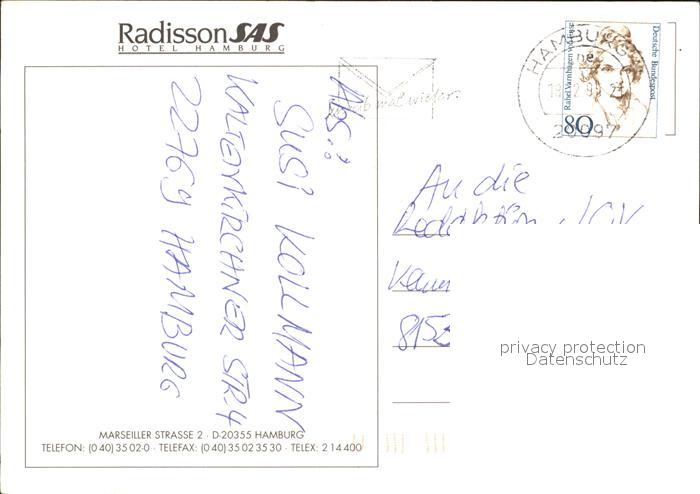 Radisson SAS
HOTEL HAMBURG
Abs.:
SUSI KOLLMANN
KALTENKIRCHNER STR. 4
22769 HAMBURG
MARSEILLER STRASSE 2 · D-20355 HAMBURG
TELEFON: (0 40) 35 02-0 · TELEFAX: (0 40) 35 02 35 30 · TELEX: 2 14 400
mal wieder.
HAMBURG
20097
Rahel Varnhagen von Ense
Deutsche Bundespost
80
An die
privacy protection
Datenschutz